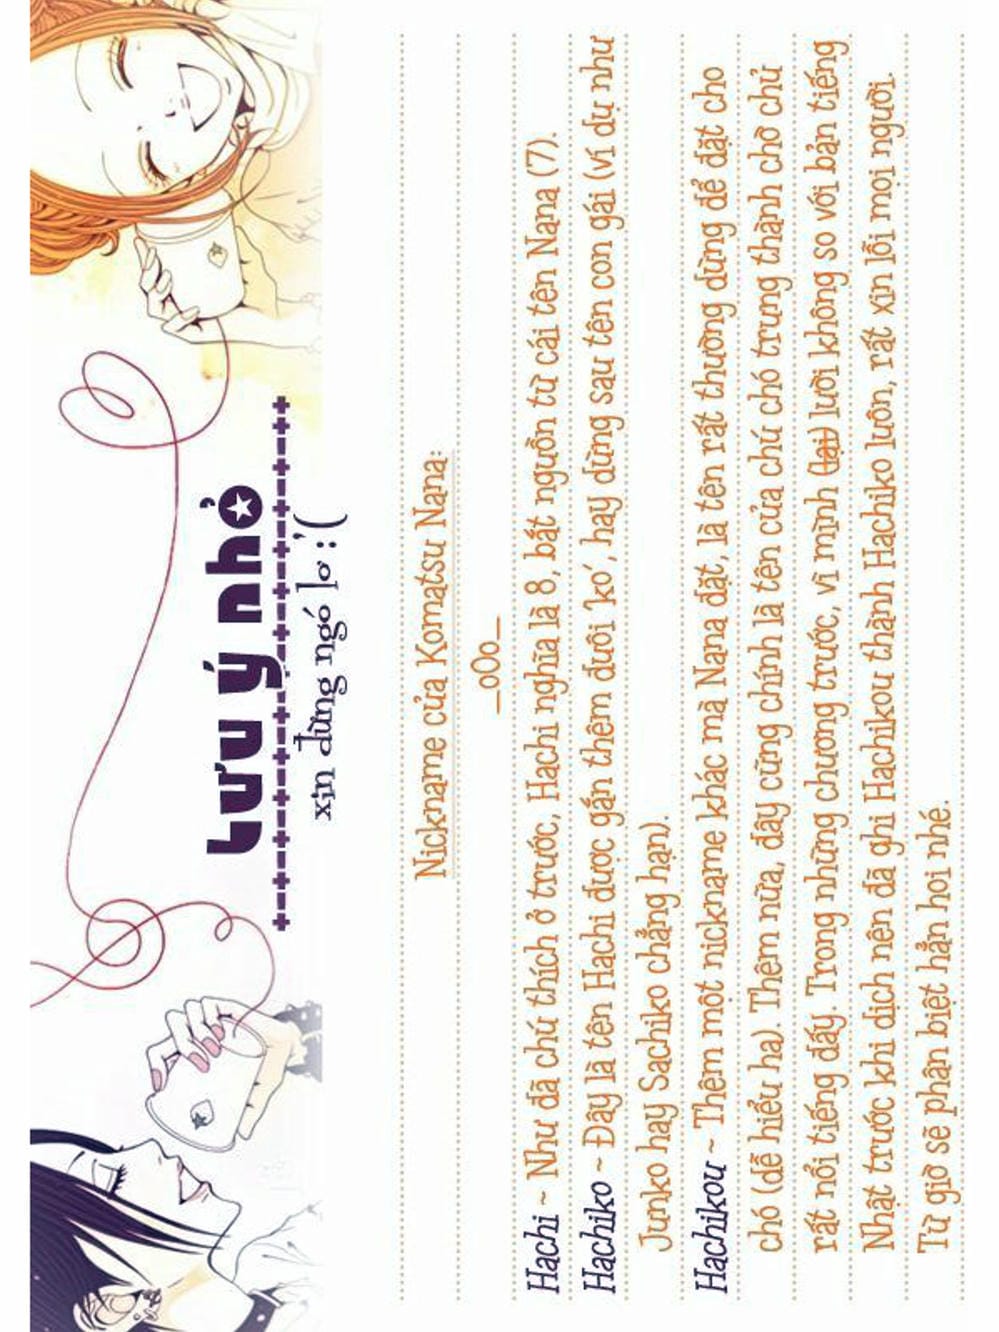 Lưu ý nhỏ
xin đừng ngó lơ :'(
Nickname của Komatsu Nana:
_oOo_
Hachi ~ Như đã chú thích ở trước, Hachi nghĩa là 8, bắt nguồn từ cái tên Nana (7).
Hachiko ~ Đây là tên Hachi được gắn thêm đuôi 'ko', hay dùng sau tên con gái (ví dụ như
Junko hay Sachiko chẳng hạn).
Hachikou ~ Thêm một nickname khác mà Nana đặt, là tên rất thường dùng để đặt cho
chó (dễ hiểu ha). Thêm nữa, đây cũng chính là tên của chú chó trung thành chờ chủ
rất nổi tiếng đấy. Trong những chương trước, vì mình (tại) lười không so với bản tiếng
Nhật trước khi dịch nên đã ghi Hachikou thành Hachiko luôn, rất xin lỗi mọi người.
Từ giờ sẽ phân biệt hẳn hoi nhé.